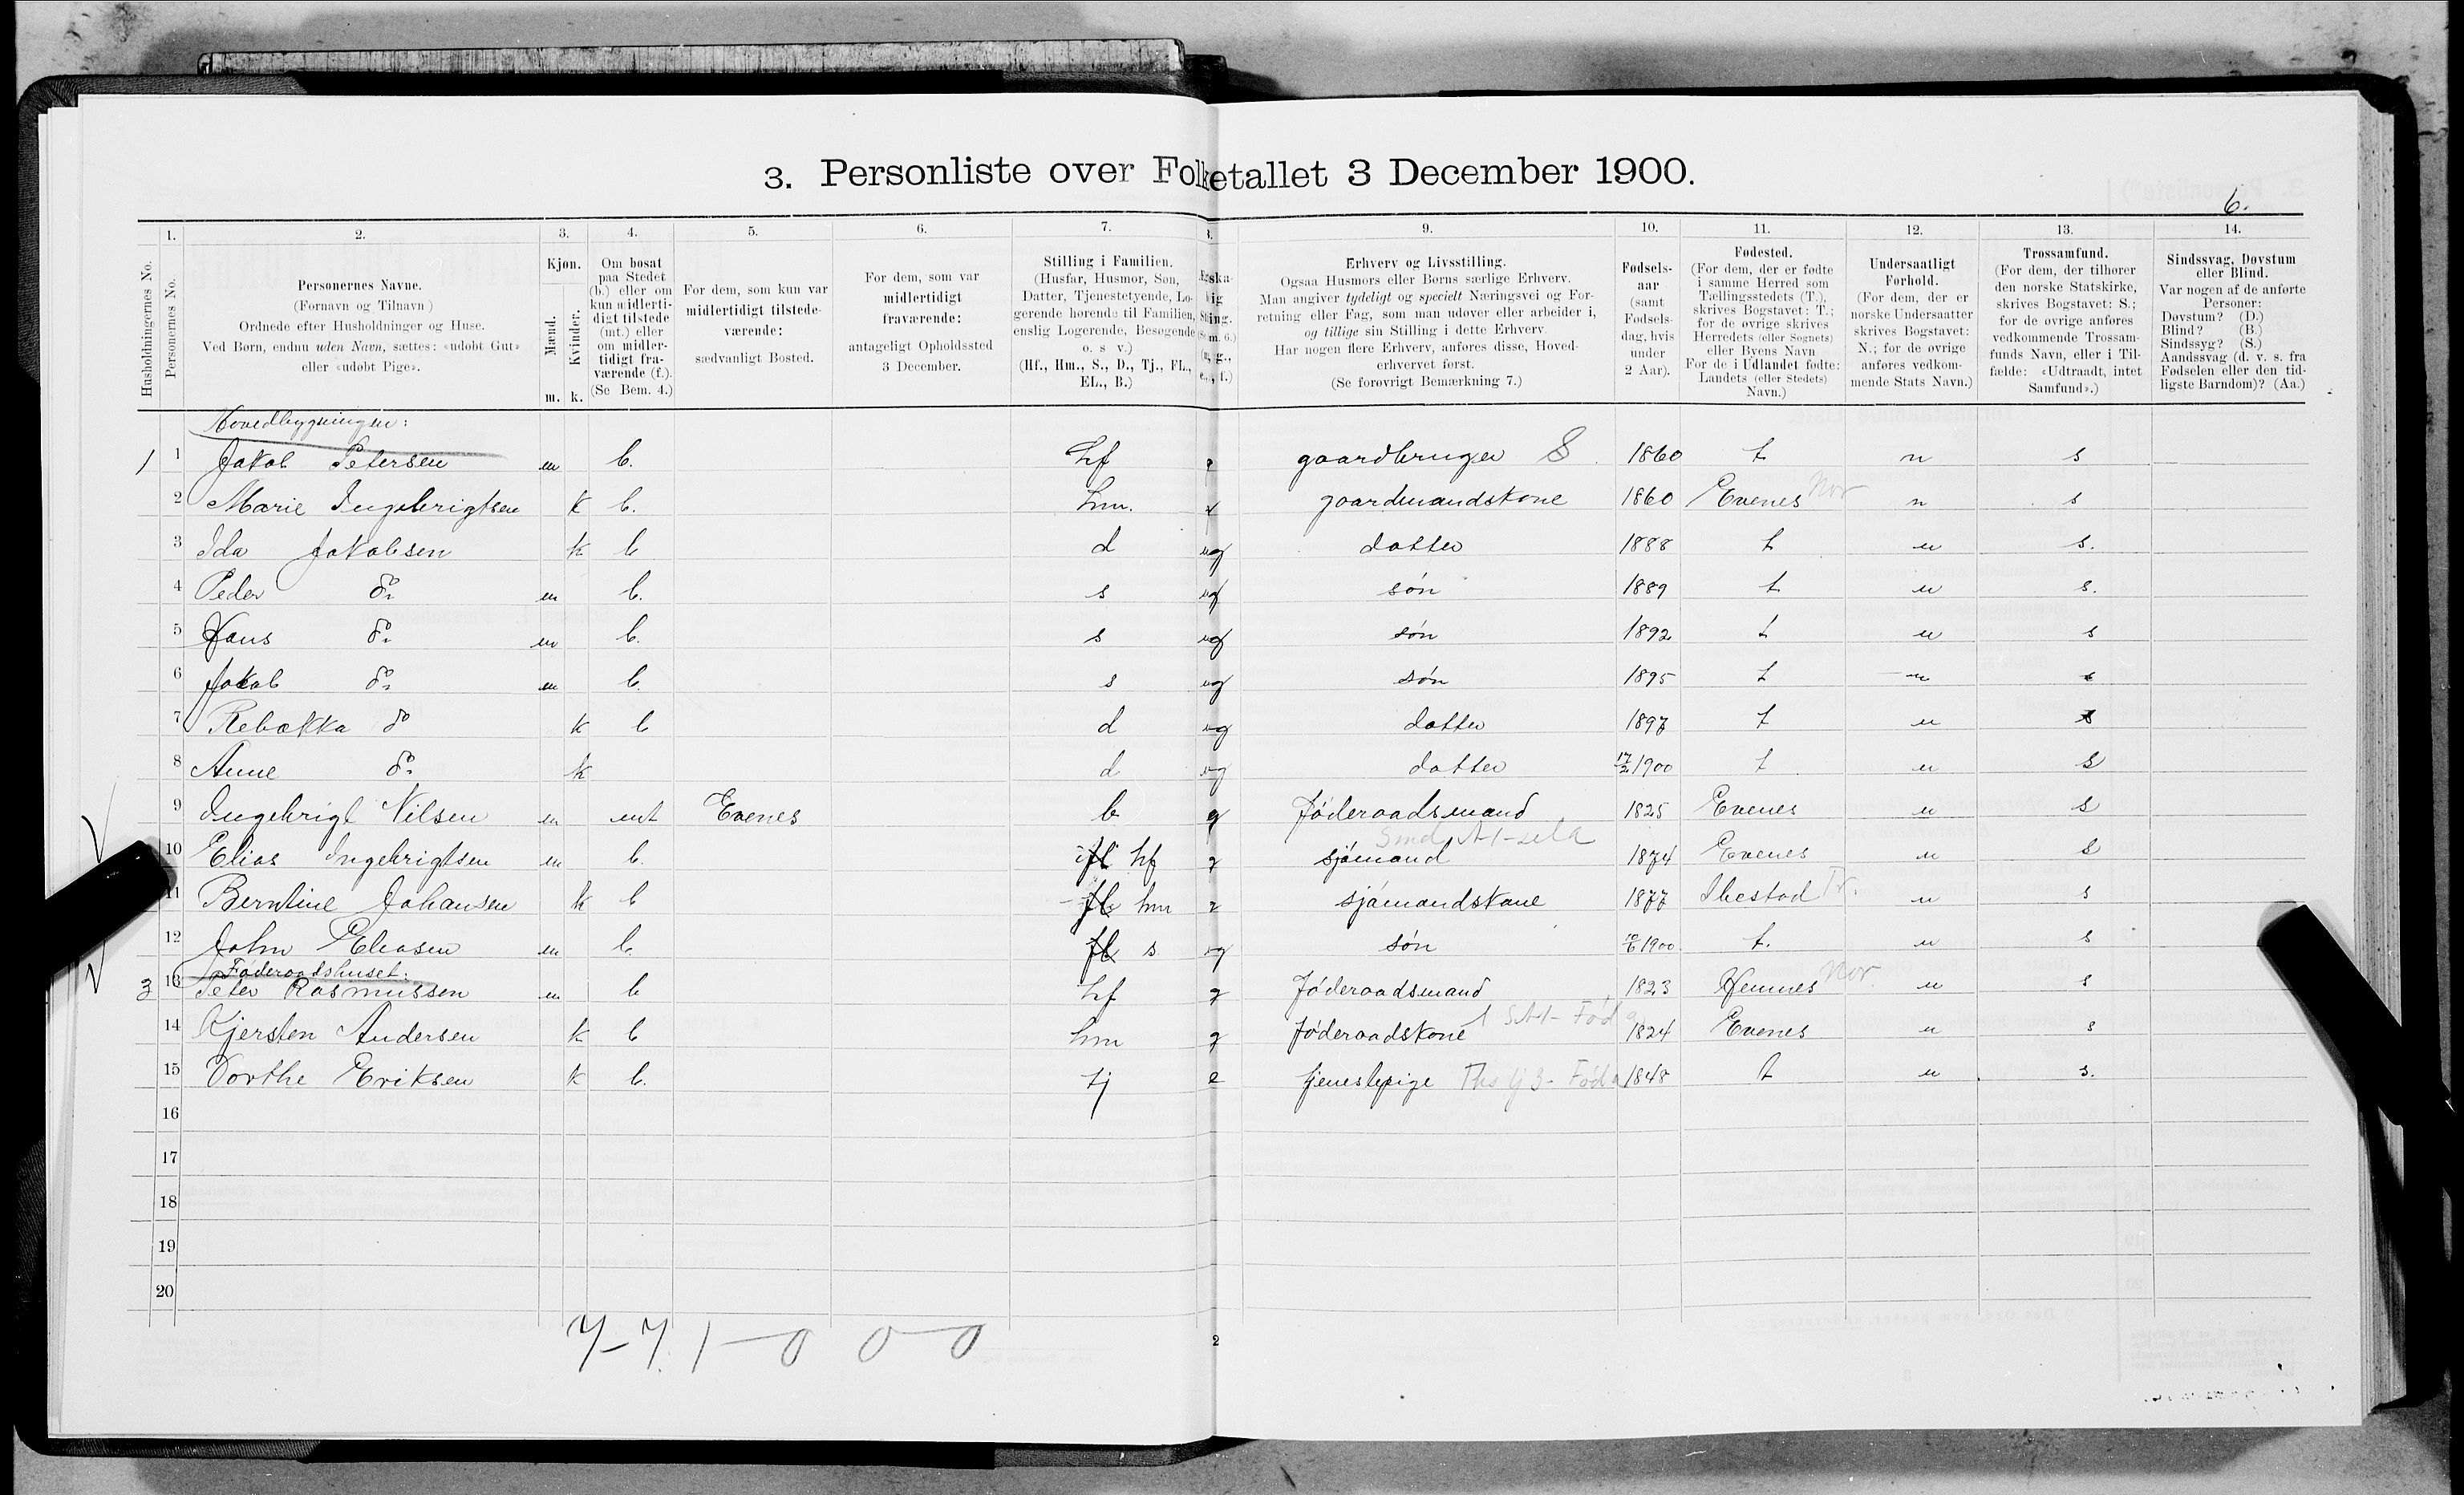 3. Personliste over Folketallet 3 December 1900.
6.
1. 2. 3. 4. 5. 6. 7. 8. 9. 10. 11. 12. 13. 14.
Husholdningernes No.
Personernes No.
Personernes Navne.
(Fornavn og Tilnavn)
Ordnede efter Husholdninger og Huse.
Ved Børn, endnu uden Navn, sættes: «udøbt Gut»
eller «udøbt Pige».
Kjøn.
Mænd.
Kvinder.
m. k.
Om bosat
paa Stedet
(b.) eller om
kun midlerti-
digt tilstede
(mt.) eller
om midler-
tidigt fra-
værende (f.).
(Se Bem. 4.)
For dem, som kun var
midlertidigt tilstede-
værende:
sædvanligt Bosted.
For dem, som var
midlertidigt
fraværende:
antageligt Opholdssted
3 December.
Stilling i Familien.
(Husfar, Husmor, Søn,
Datter, Tjenestetyende, Lo-
gerende hørende til Familien,
enslig Logerende, Besøgende
o. s v.)
(Hf., Hm., S., D., Tj., FL.,
EL., B.)
Erhverv og Livsstilling.
Ogsaa Husmors eller Børns særlige Erhverv.
Man angiver tydeligt og specielt Næringsvei og For-
retning eller Fag, som man udøver eller arbeider i,
og tillige sin Stilling i dette Erhverv.
Har nogen flere Erhverv, anføres disse, Hoved-
erhvervet først.
(Se forøvrigt Bemærkning 7.)
Fødsels-
aar
(samt
Fødsels-
dag, hvis
under
2 Aar).
Fødested.
(For dem, der er fødte
i samme Herred som
Tællingsstedets (T.),
skrives Bogstavet: T.;
for de øvrige skrives
Herredets (eller Sognets)
eller Byens Navn
For de i Udlandet fødte:
Landets (eller Stedets)
Navn.)
Undersaatligt
Forhold.
(For dem, der er
norske Undersaatter
skrives Bogstavet:
N.; for de øvrige
anføres vedkom-
mende Stats Navn.)
Trossamfund.
(For dem, der tilhører
den norske Statskirke,
skrives Bogstavet: S.;
for de øvrige anføres
vedkommende Trossam-
funds Navn, eller i Til-
fælde: «Udtraadt, intet
Samfund».)
Sindssvag, Døvstum
eller Blind.
Var nogen af de anførte
Personer:
Døvstum? (D.)
Blind? (B.)
Sindssyg? (S.)
Aandssvag (d. v. s. fra
Fødselen eller den tid-
ligste Barndom)? (Aa.)
Hovedbygningen:
1 1 Jakob Petersen m b. hf g gaardbruger S 1860 t n s
2 Marie Ingebrigtsen k b. hm. g gaardmandskone 1860 Evenes Nor n s
3 Ida Jakobsen k b d ug datter 1888 t n s.
4 Peder do m b. s ug søn 1889 t n s.
5 Hans do m b. s ug søn 1892 t n s
6 Jakob do m b. s ug søn 1895 t n s
7 Rebekka do k b d ug datter 1897 t n s
8 Anne do k d ug datter 17/2 1900 t n s
9 Ingebrigt Nilsen m mt Evenes b g Føderaadsmand 1825 Evenes n s
10 Elias Ingebrigtsen m b. fl hf g sjømand 1874 Evenes n s
11 Berntine Johansen k b fl hm g sjømandskone 1877 Ibestad Tr. n s
12 John Eliasen m b. fl s ug søn 10/6 1900 t. n s
Føderaadshuset:
3 13 Peter Rasmussen m b hf g Føderaadsmand 1823 Hemnes Nor. n s
14 Kjersten Andersen k b hm g føderaadskone 1824 Evenes n s
15 Dorthe Eriksen k b. tj e tjenestepige 1848 t n s.
16
17
18
19
20
7-7. 1-0 0-0
2